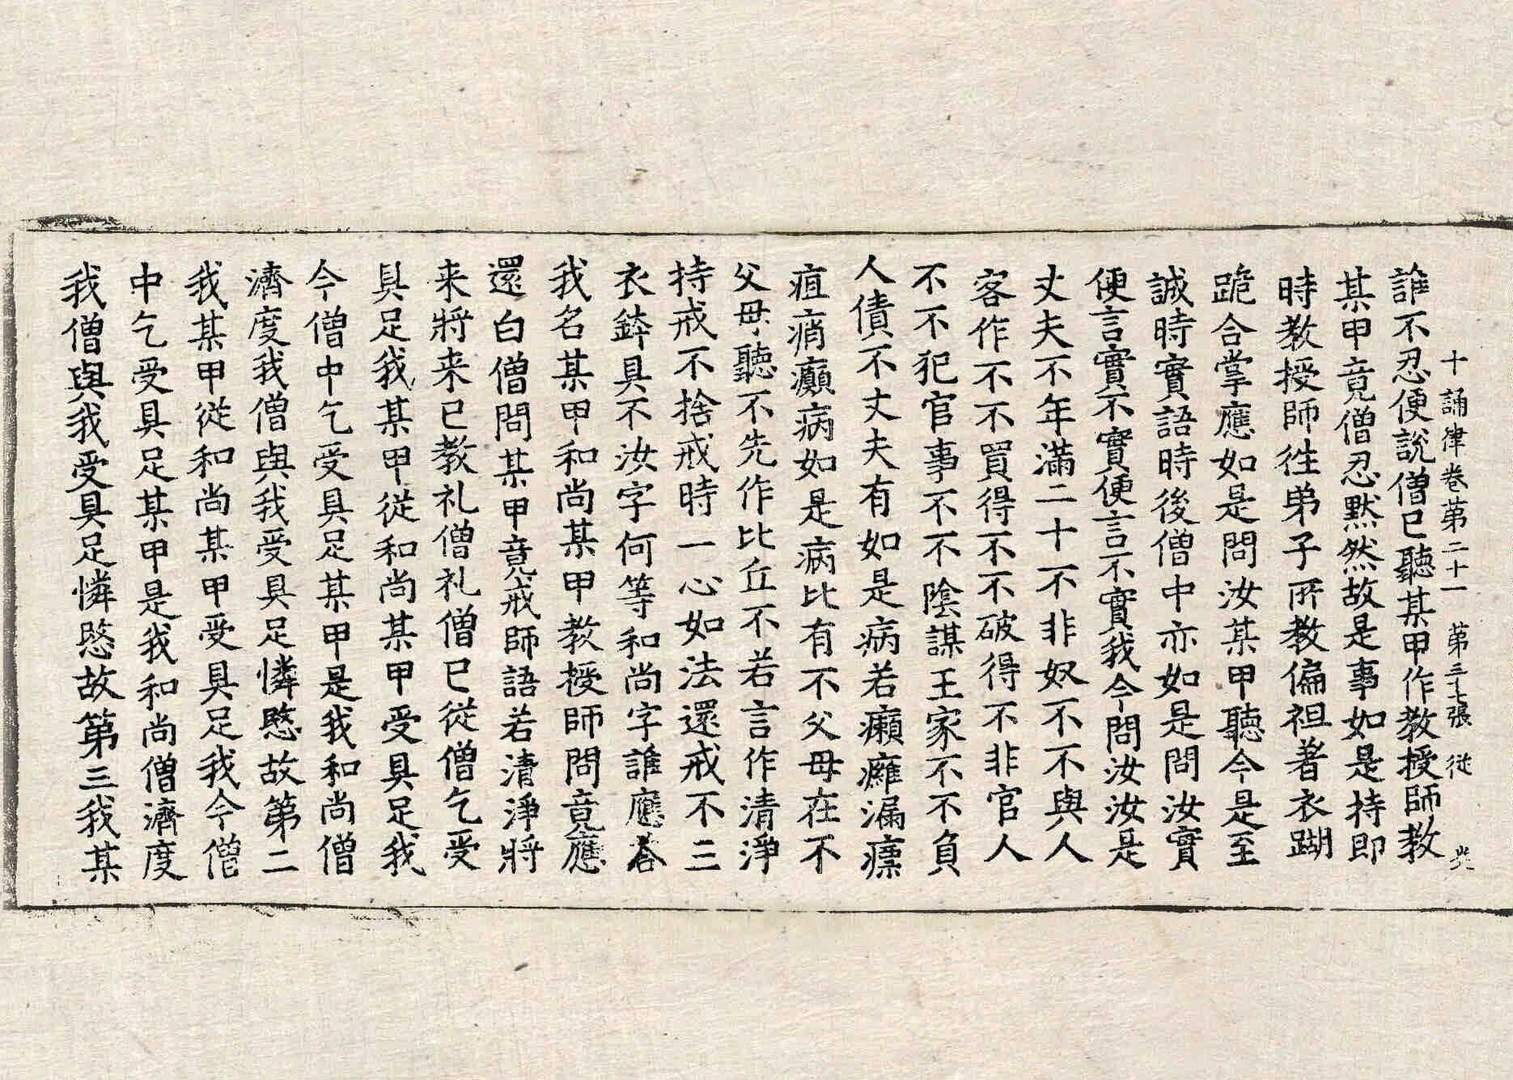 十誦律卷苐二十一 苐三七張 従
誰不忍便說僧已聽某甲作教授師教
某甲竟僧忍默然故是事如是持即
時教授師徃弟子所教偏袒著衣𨄔
跪合掌應如是問汝某甲聽今是至
誠時實語時後僧中亦如是問汝實
便言實不實便言不實我今問汝汝是
丈夫不年滿二十不非奴不不與人
客作不不買得不不破得不非官人
不不犯官事不不陰謀王家不不負
人債不丈夫有如是病若癩癰漏瘭
疽痟癲病如是病比有不父母在不
父母聽不先作比丘不若言作清淨
持戒不捨戒時一心如法還戒不三
衣鉢具不汝字何等和尚字誰應答
我名某甲和尚某甲教授師問竟應
還白僧問某甲竟戒師語若清淨將
来將来已教礼僧礼僧已従僧乞受
具足我某甲従和尚某甲受具足我
今僧中乞受具足某甲是我和尚僧
濟度我僧與我受具足憐愍故第二
我某甲従和尚某甲受具足我今僧
中乞受具足某甲是我和尚僧濟度
我僧與我受具足憐愍故第三我某